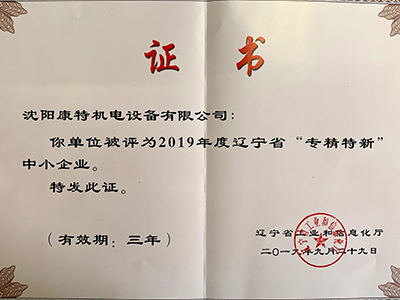 证书
沈阳康特机电设备有限公司:
你单位被评为2019年度辽宁省“专精特新”
中小企业。
特发此证。
辽宁省工业和信息化厅
(有效期:三年)
二〇一九年九月二十九日